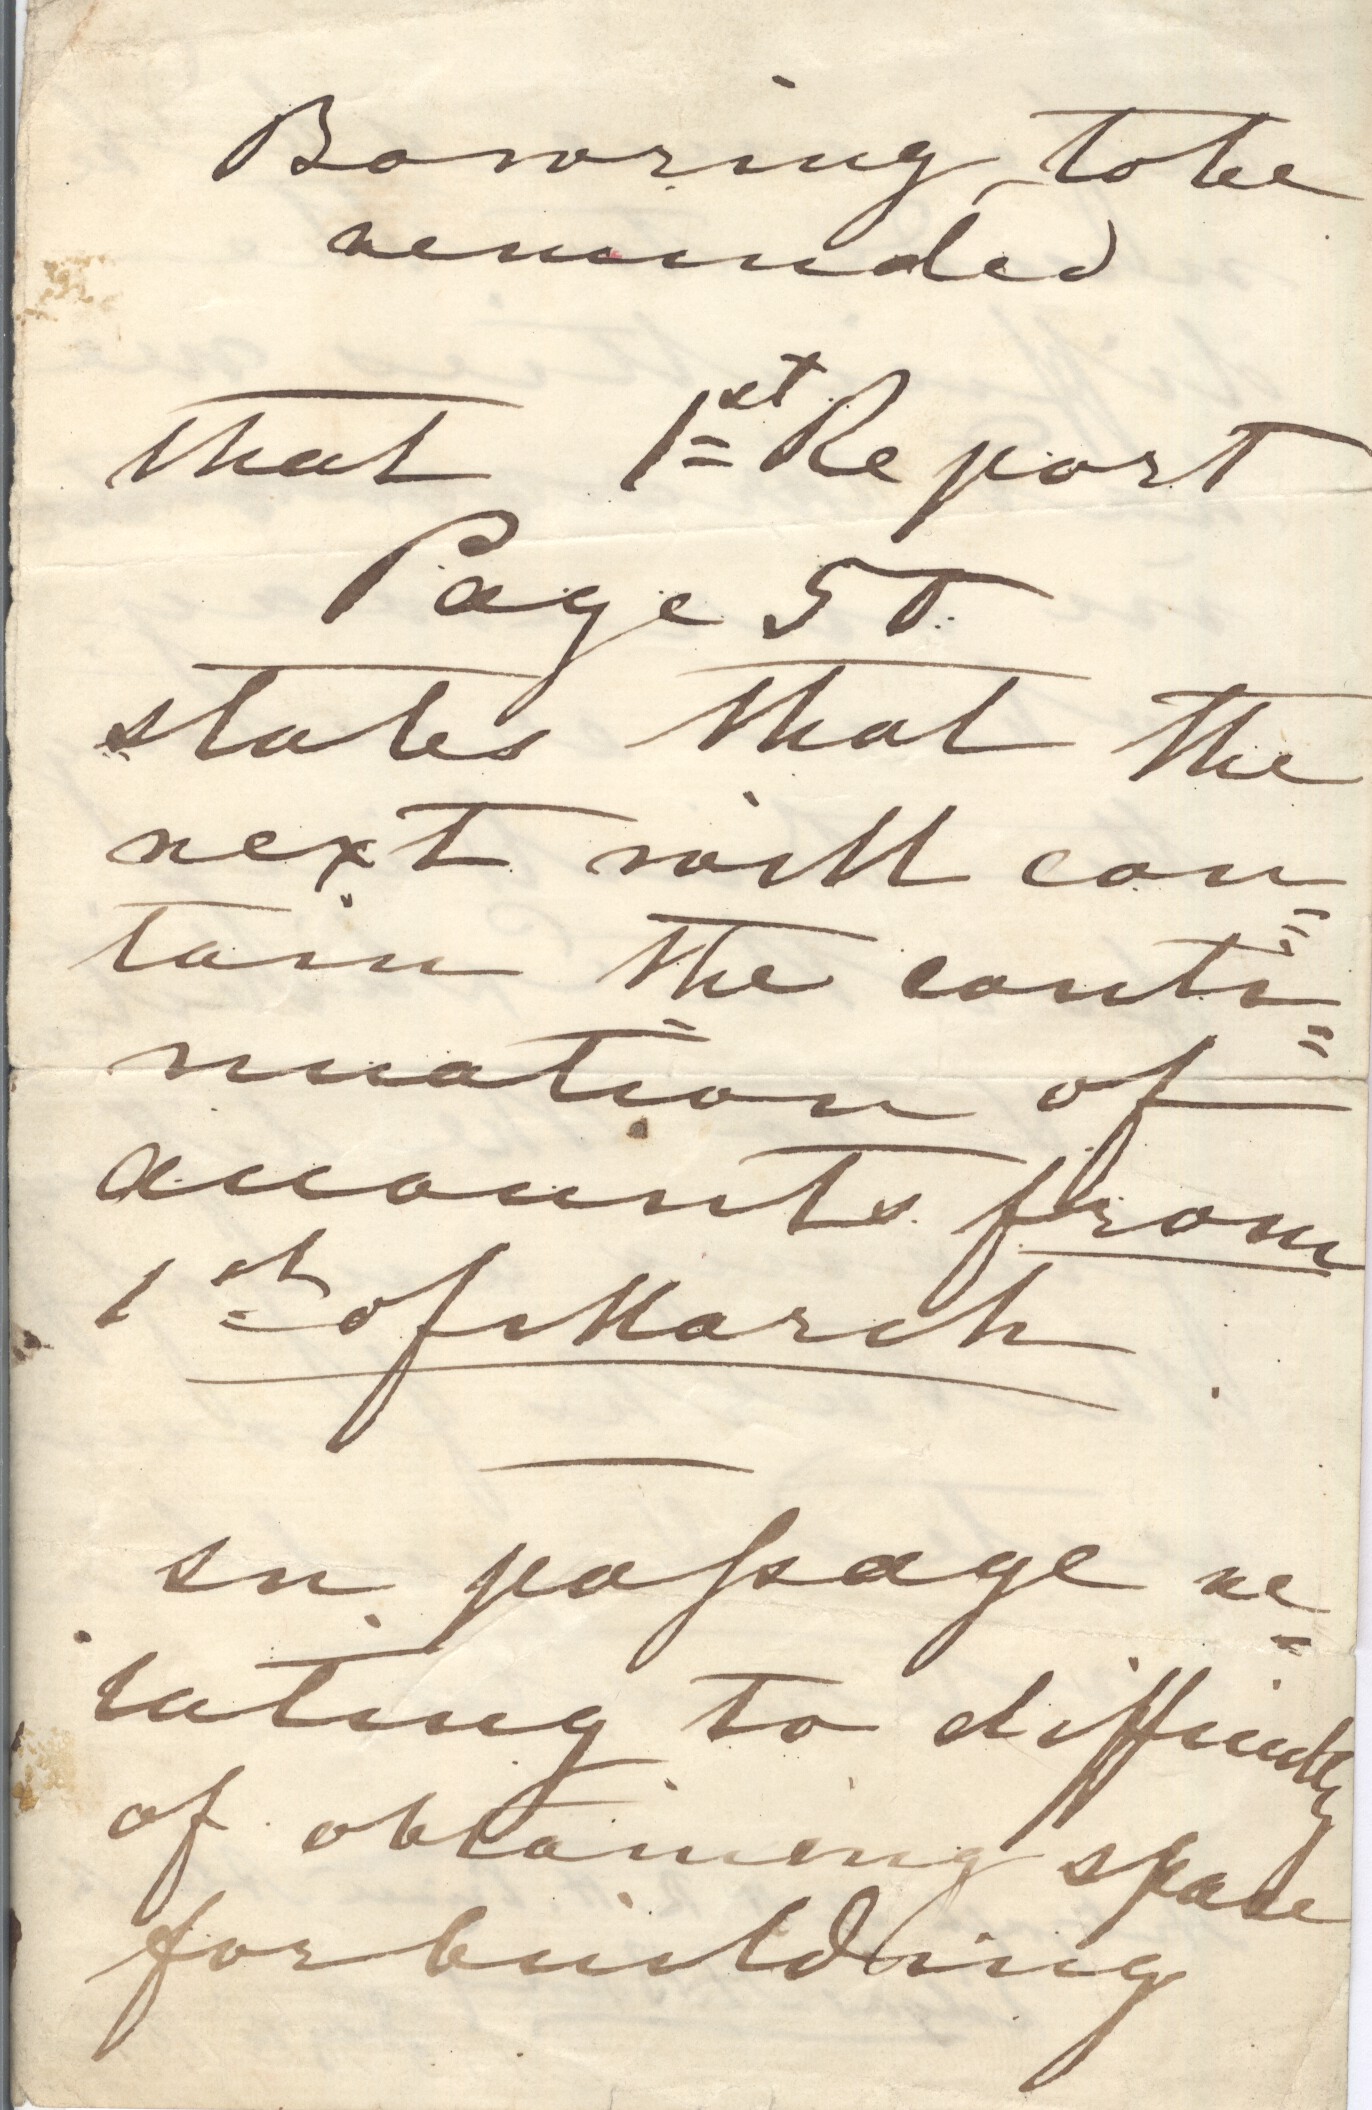 Bowring to be
reminded
that 1st Report
Page 50
states that the
next will con=
tain the conti=
nuation of
accounts from
1st of March
In passage re=
lating to difficulty
of obtaining space
for building